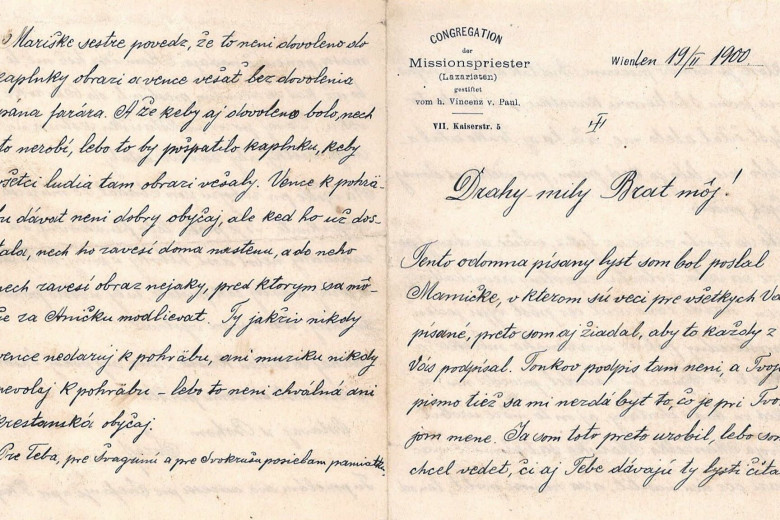 Mariške sestre povedz, že to neni dovoleno do
kaplnky obrazi a vence vešať bez dovolenia
pána farára. A že keby aj dovoleno bolo, nech
to nerobí, lebo to by pošpatilo kaplnku, keby
všetci ludia tam obrazi vešaly. Vence k pohrä-
bu dávat neni dobry obyčaj, ale ked ho už dos-
tala, nech ho zavesí doma na stenu, a do neho
nech zavesí obraz nejaky, pred ktorym sa mô-
že za Aničku modlievat. Ty jakživ nikdy
vence nedaruj k pohräbu, ani muziku nikdy
nevolaj k pohräbu – lebo to neni chválná ani
krestanská obyčaj.
Pre Teba, pre Švagrinú a pre Svokrušu posielam pamiatki.
CONGREGATION
der
Missionspriester
(Lazaristen)
gestiftet
vom h. Vincenz v. Paul.
VII. Kaiserstr. 5
Wienden 19/II 1900.
Drahy-mily Brat môj!
Tento odomna písany lyst som bol poslal
Mamičke, v kterom sú veci pre všetkych Vás
písané, preto som aj žiadal, aby to každy z
Vás podpísal. Tonkov podpis tam neni, a Tvoje
pismo tiež sa mi nezdá byt to, čo je pri Tvo-
jom mene. Ja som toto preto urobil, lebo som
chcel vedet, či aj Tebe dávajú ty lysti čita